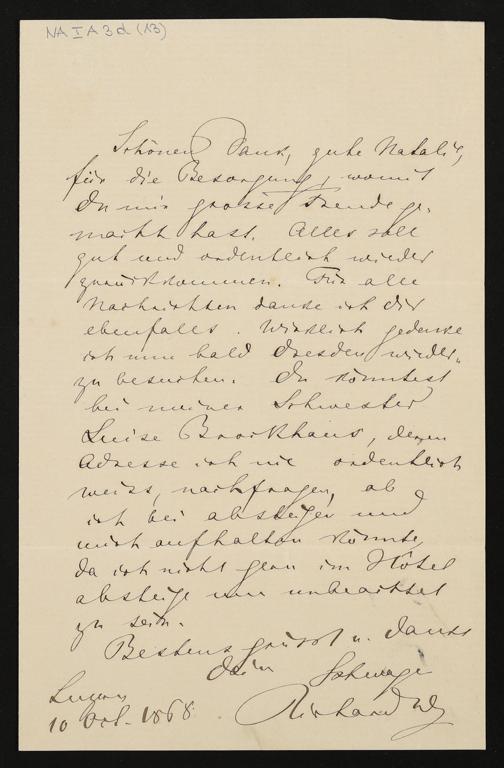 NA I A 3 d (13)
Schönen Dank, gute Natalie,
für die Besorgung, womit
Du mir grosse Freude ge-
macht hast. Alles soll
gut und ordentlich wieder
zurückkommen. Für alle
Nachrichten danke ich Dir
ebenfalls. Wirklich gedenke
ich nun bald Dresden wieder
zu besuchen. Du könntest
bei meiner Schwester
Luise Brockhaus, deren
Adresse ich nie ordentlich
weiss, nachfragen, ob
ich bei absteigen und
mich aufhalten könnte,
da ich nicht gern im Hôtel
absteige um unbeachtet
zu sein.
Bestens grüsst u. dankt
Dein Schwager
Luzern
10 Oct. 1868.
Richard W